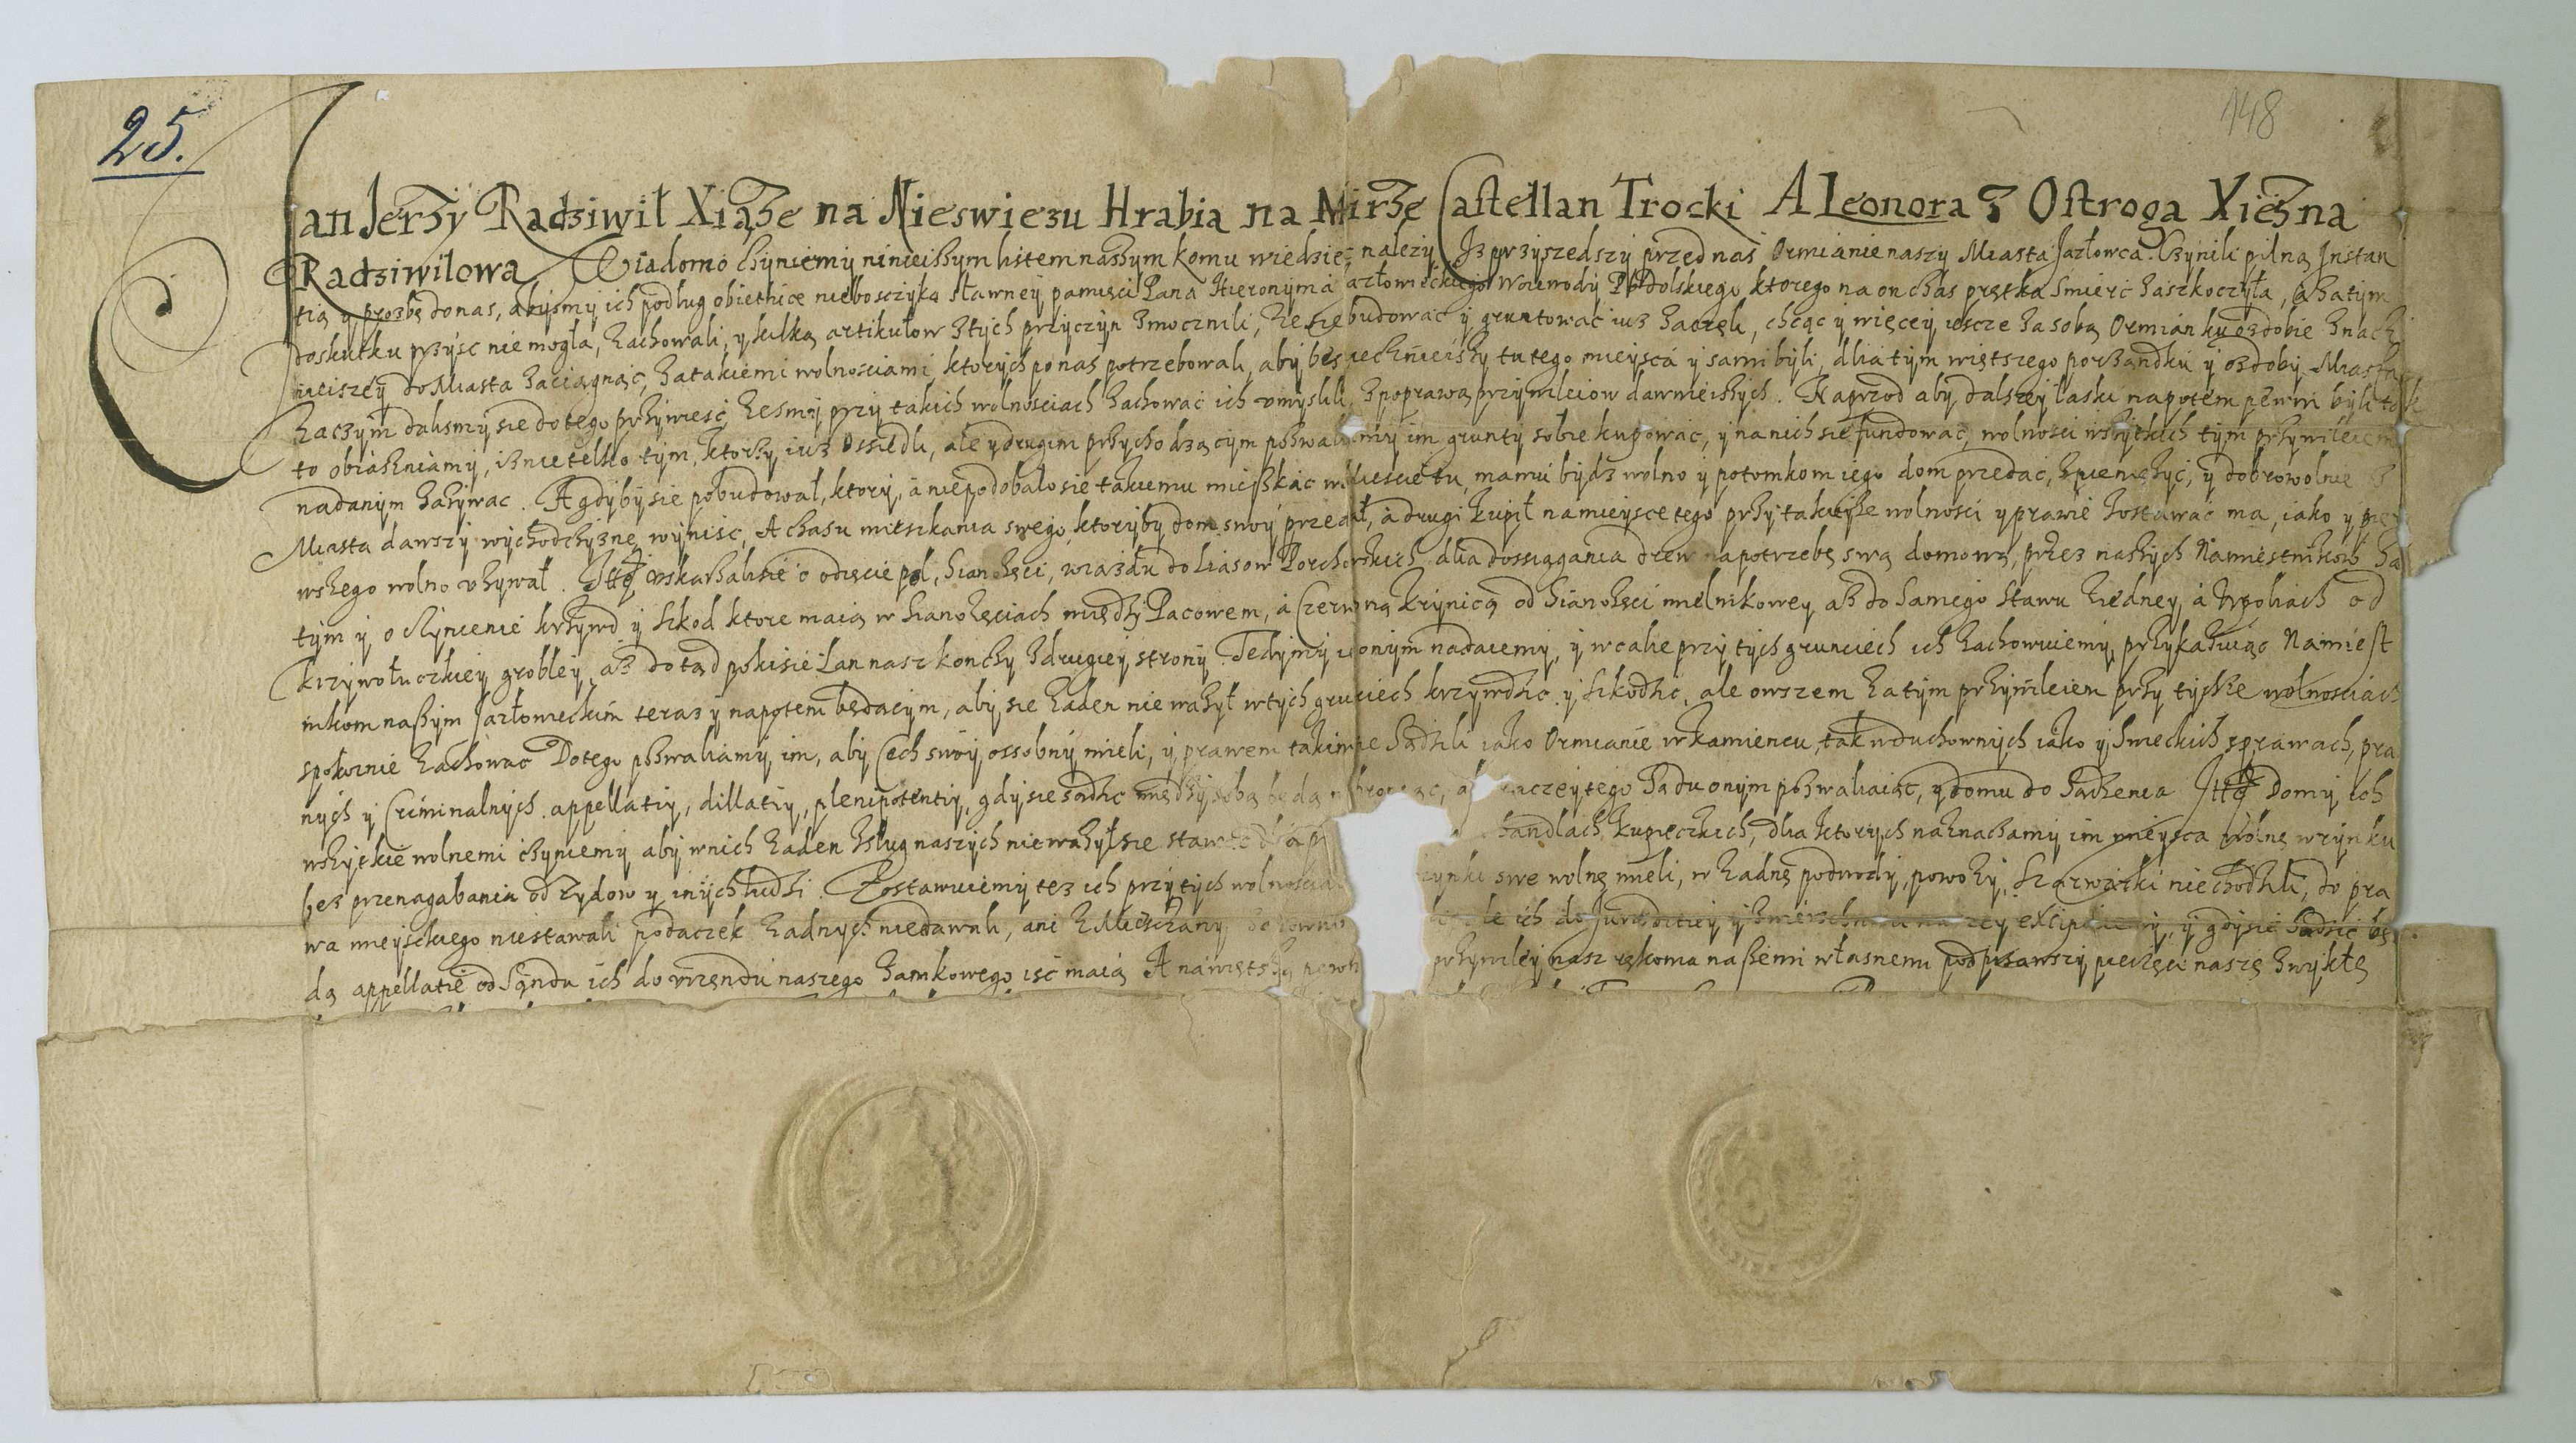 25.
148
Jan Jerzy Radziwił Xiąże na Nieswiezu Hrabia na Mirze Castellan Trocki ALeonora z Ostroga Xiężna
Radziwilowa Wiadomo czyniemy ninieiszym listem naszym komu wiedzieć należy Iz przyszedszy przed nas Ormianie naszy Miasta Jazłowca. Czynili pilną Instan
tią y prozbę do nas, abysmy ich podług obietnice niebosczyka sławney pamięci Pana Hieronyma azłowieckiego Woiewody Podolskiego ktorego na on czas prętka smierć zaszkoczyła, a zatym
do skutku przysc nie mogła, zachowali, y kilką artikułow z tych przyczyn zmocnili, ze się budowac y gruntowac iuz zaczęli, chcąc y więcey iescze za sobą Ormian ku ozdobie znacz
nieiszey do Miasta zaciągnąć, za takiemi wolnosciami ktorych po nas potrzebowali, aby bespiecznieiszy tu tego mieysca y sami byli, dlia tym więtszego porządku y ozdoby Miasta
Zaczym dalismy sie do tego przywiesć zesmy przy takich wolnosciach zachować ich umyslili z poprawą przywileiow dawnieiszych. Naprzod aby dalszey łaski napotem pewni byli tak
to obiaszniamy, isz nie telko tym, ktorzy iuz ossiedli, ale y drugim przychodzącym pozwaliamy im grunty sobie kupować, y na nich sie fundować, wolnosci wszytkich tym przywileiem
nadanym zażywac. A gdyby sie pobudował, ktory, a niepodobało sie takiemu mieszkac w miescie tu, ma mu bydz wolno y potomkom iego dom przedać, zpieniężyć, y dobrowolnie z
Miasta dawszy wychodczyznę wyniśc, A czasu mieszkania swego, ktoryby dom swoy przedał, a drugi kupił na mieysce tego przy takieyze wolnosci y prawie zostawac ma, iako y pier
wszego wolno używał. Itt uskarzali sie o odięcie pol, sianozęci, wiazdu do liasow Porchowskich dlia dossiągania drew na potrzebę swą domową, przez naszych Namiestnikow za
tym y o czynienie krzywd y szkod ktore maią w sianozęciach między Pacowem, a Czerwoną Krynicą od sianozęci mielnikowey asz do samego stawu zIedney, a w poliach od
Krzywołuczkiey grobley, asz dotąd pokisie Lan nasz konczy z drugiey strony. Tedy my i onym nadaiemy, y wcalie przy tych grunciech ich zachowuiemy, przykazuiąc Namiest
nikom naszym Jazłowieckim teraz y napotem będacym, aby sie żaden nie ważył w tych grunciech krzywdzic y szkodzic, ale owszem za tym przywileiem przy tychze wolnosciach
spokoinie zachowac Do tego pozwaliamy im, aby Cech swoy ossobny mieli, y prawem takimze sądzili iako Ormianie w Kamiencu, tak w duchownych iako y swieckich sprawach, pra
nych y Criminalnych. appellatiy, dillatiy, plenipotentiy, gdy sie sądzic między sobą będą tego sądu onym pozwaliaiąc, y domu do sądzenia Itt Domy ich
wszytkie wolnemi czyniemy aby w nich żaden z sług naszych nieważył sie handlach, kupieczkich, dlia ktorych naznaczamy im mieysca wolne w rynku
bez przenagabania od Zydow y inych ludzi. Zostawuiemy tez ich przy tych wolnosciach szynki swe wolne mieli, w zadne podwody, powozy, szarwarki nie chodzili, do pra
wa mieyskiego niestawali podaczek zadnych niedawali, ani z Miesczany ich do Jurisditiey y zwierzchnosci naszey y gdy sie sądzić bę
dą appellatie od sąndu ich do urzendu naszego zamkowego isc maią A na większą przywiley nasz rękoma naszemi własnemi podpisawszy, pieczęci nasze zwykłe